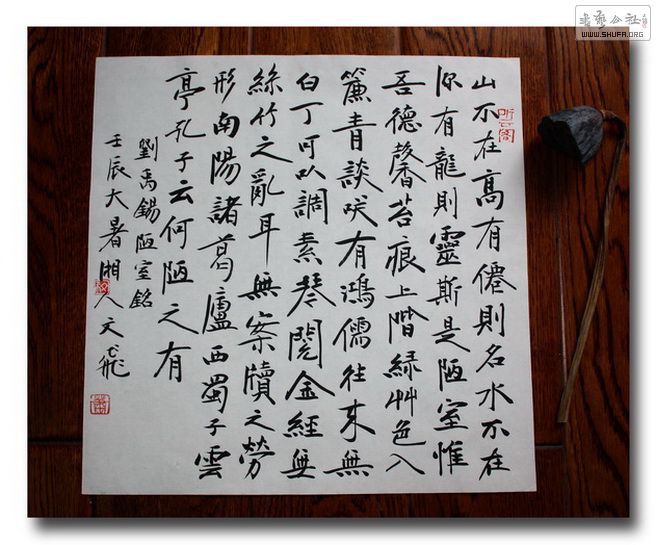 山不在高有僊則名水不在
深有龍則靈斯是陋室惟
吾德馨苔痕上階綠艸色入
簾青談咲有鴻儒往來無
白丁可以調素琴閱金經無
絲竹之亂耳無案牘之勞
形南陽諸葛廬西蜀子雲
亭孔子云何陋之有
劉禹錫陋室銘
壬辰大暑湘人文飛
書藝公社
WWW.SHUFA.ORG